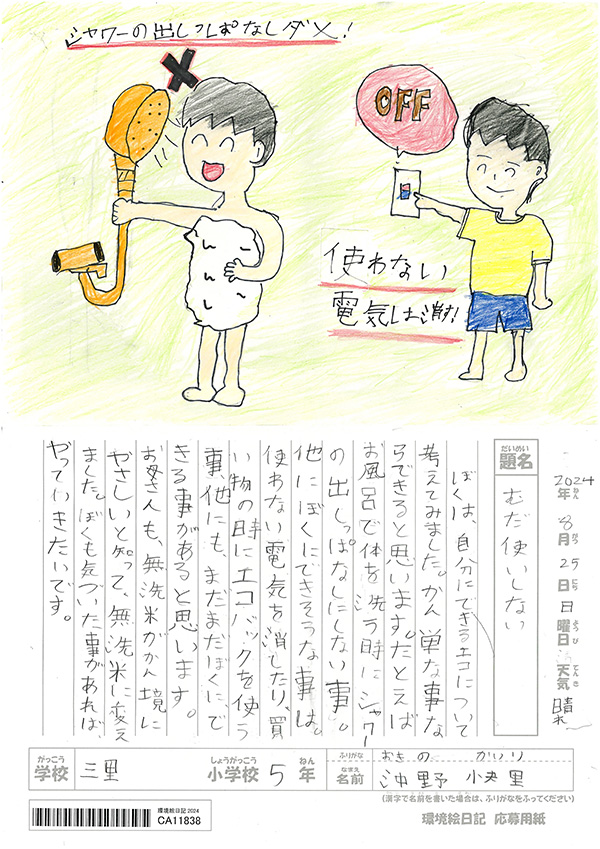 シャワーの出しっぱなしダメ!
OFF
使わない
電気は消す!
2024年ねん 8月がつ 25日にち 日曜日ようび 天気てんき 晴れ
だいめい
題名
むだ使いしない
ぼくは、自分にできるエコについて
考えてみました。かん単な事な
らできると思います。たとえば
お風呂で体を洗う時にシャワー
の出しっぱなしにしない事。
他にぼくにできそうな事は。
使わない電気を消したり、買
い物の時にエコバックを使う
事、他にも、まだまだぼくに、で
きる事があると思います。
お母さんも、無洗米がかん境に
やさしいと知って、無洗米に変え
ました。ぼくも気づいた事があれば、
やっていきたいです。
がっこう しょうがっこう ねん
学校 三里 小学校 5 年
ふりがな おきの かいり
なまえ
名前 沖野 快里
(漢字で名前を書いた場合は、ふりがなをふってください)
環境絵日記 2024
CA11838
環境絵日記 応募用紙